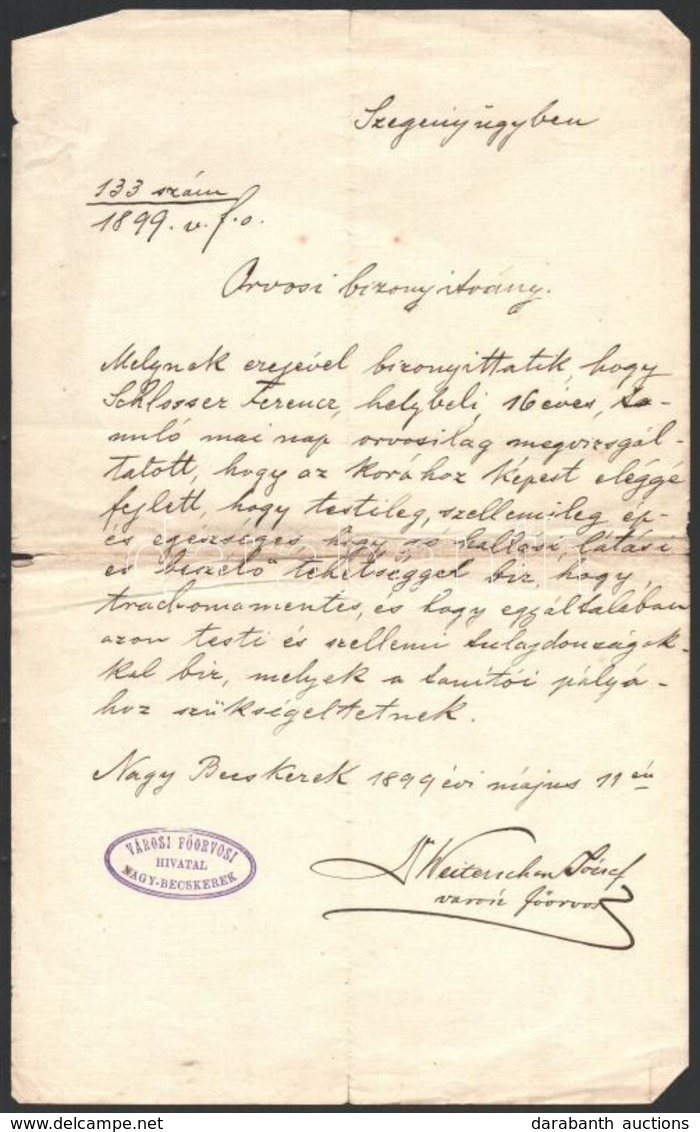 Szegényügyben
133 szám
1899. v. f. o.
Orvosi bizonyitvány.
Melynek erejével bizonyittatik, hogy
Schlosser Ferencz, helybeli, 16 éves, ta-
nuló mai nap orvosilag megvizsgál-
tatott, hogy az korához képest eléggé
fejlett, hogy testileg, szellemileg ép-
és egészséges, hogy jó hallási, látási
és beszélő tehetséggel bir, hogy,
trachomamentes, és hogy egyáltalában
azon testi és szellemi tulajdonságok-
kal bir, melyek a tanítói pályá-
hoz szükségeltetnek.
Nagy Becskerek 1899 évi május 11 én
VÁROSI FŐORVOSI
HIVATAL
NAGY-BECSKEREK
Dr Weiterschan József
városi főorvos
darabanth
darabanth auctions